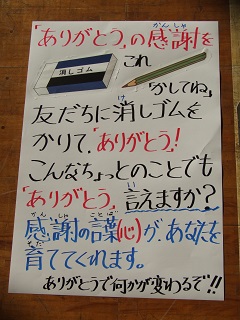 「ありがとう」の感謝を
かんしゃ
これ
消しゴム
かしてね」
友だちに消しゴムを
かりて、「ありがとう!
こんなちょっとのことでも
「ありがとう」言えますか?
感謝の言葉(心)が、あなたを
育ててくれます。
ありがとうで何かが変わるで!!